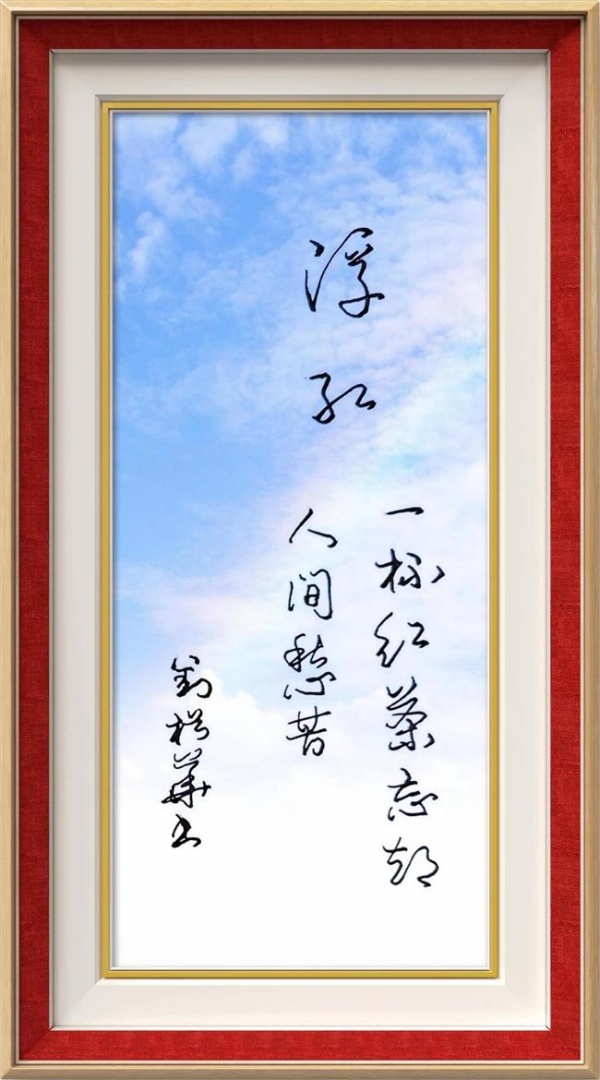 浮红
一杯红茶忘却
人间愁苦
劉華书